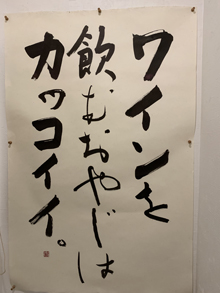 ワインを
飲むおやじは
カッコイイ。